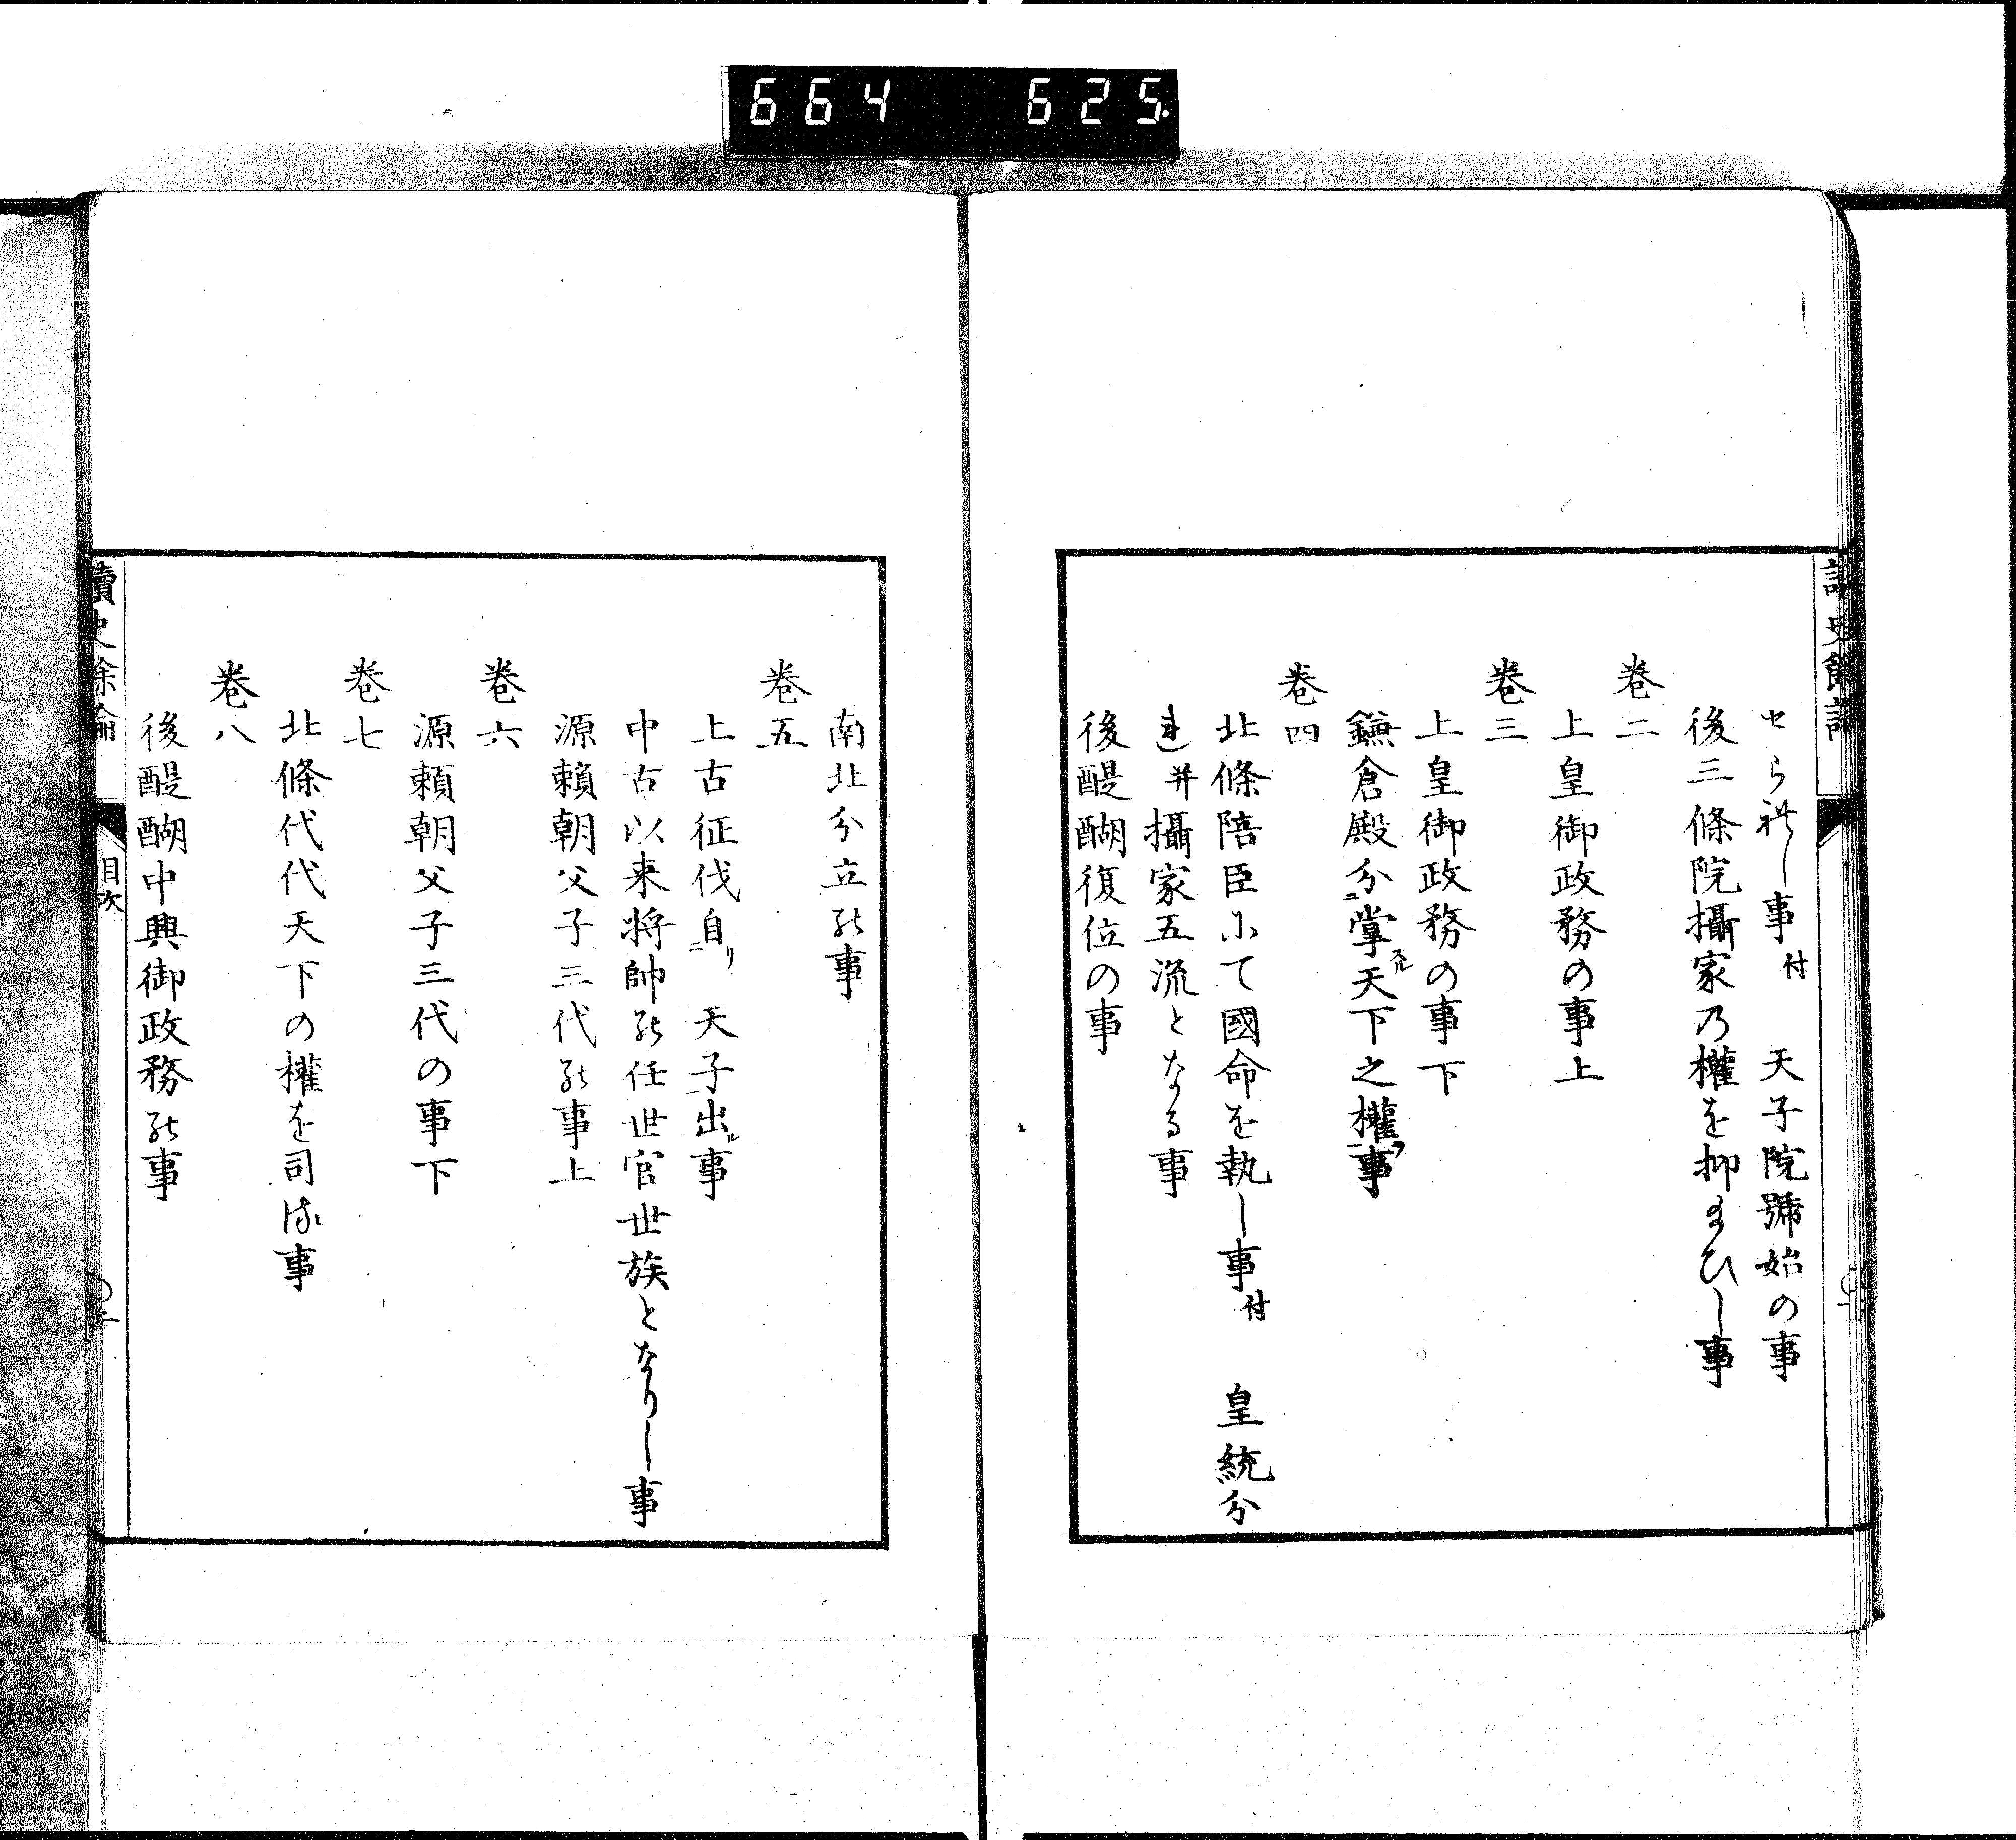 664 625
讀史餘論
せられし事付 天子院號始の事
後三條院攝家乃權を抑玉ひし事
卷二
上皇御政務の事上
卷三
上皇御政務の事下
鎌倉殿分ニ掌スル天下之權ヲ事
卷四
北條陪臣にて國命を執し事付 皇統分
れ并攝家五流となる事
後醍醐復位の事
南北分立能事
卷五
上古征伐自リ天子出ル事
中古以来将帥能任世官世族となりし事
源頼朝父子三代能事上
卷六
源頼朝父子三代の事下
卷七
北條代代天下の權を司る事
卷八
後醍醐中興御政務能事
讀史餘論 目次 二